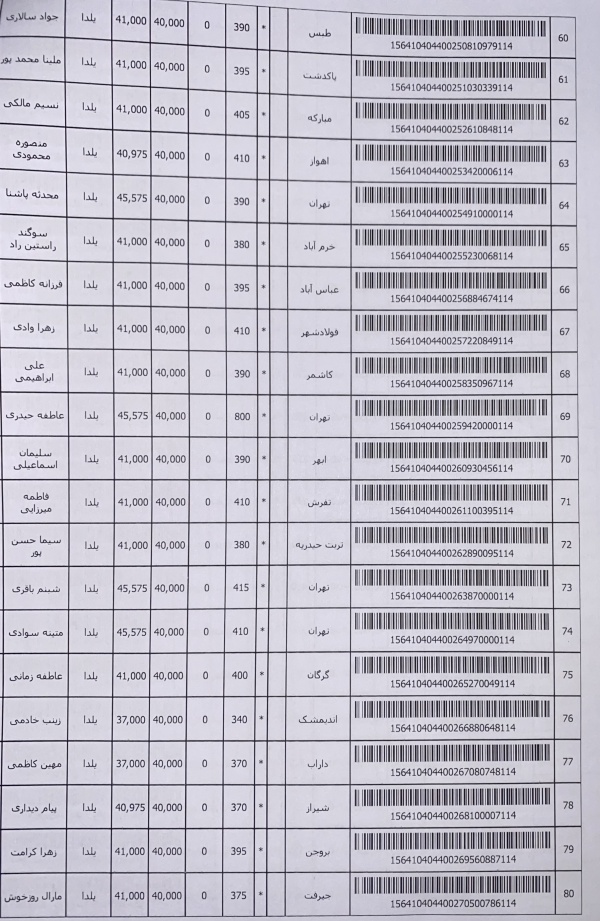 60 156410404400250810979114 طبس * 390 0 40,000 41,000 یلدا جواد سالاری
61 156410404400251030339114 پاکدشت * 395 0 40,000 41,000 یلدا ملینا محمد پور
62 156410404400252610848114 مبارکه * 405 0 40,000 41,000 یلدا نسیم مالکی
63 156410404400253420006114 اهواز * 410 0 40,000 40,975 یلدا منصوره محمودی
64 156410404400254910000114 تهران * 390 0 40,000 45,575 یلدا محدثه پاشنا
65 156410404400255230068114 خرم آباد * 380 0 40,000 41,000 یلدا سوگند راستین راد
66 156410404400256884674114 عباس آباد * 395 0 40,000 41,000 یلدا فرزانه کاظمی
67 156410404400257220849114 فولادشهر * 410 0 40,000 41,000 یلدا زهرا وادی
68 156410404400258350967114 کاشمر * 390 0 40,000 41,000 یلدا علی ابراهیمی
69 156410404400259420000114 تهران * 800 0 40,000 45,575 یلدا عاطفه حیدری
70 156410404400260930456114 ابهر * 390 0 40,000 41,000 یلدا سلیمان اسماعیلی
71 156410404400261100395114 تفرش * 410 0 40,000 41,000 یلدا فاطمه میرزایی
72 156410404400262890095114 تربت حیدریه * 380 0 40,000 41,000 یلدا سیما حسن پور
73 156410404400263870000114 تهران * 415 0 40,000 45,575 یلدا شبنم باقری
74 156410404400264970000114 تهران * 410 0 40,000 45,575 یلدا متینه سوادی
75 156410404400265270049114 گرگان * 400 0 40,000 41,000 یلدا عاطفه زمانی
76 156410404400266880648114 اندیمشک * 340 0 40,000 37,000 یلدا زینب خادمی
77 156410404400267080748114 داراب * 370 0 40,000 37,000 یلدا مهین کاظمی
78 156410404400268100007114 شیراز * 370 0 40,000 40,975 یلدا پیام دیداری
79 156410404400269560887114 بروجن * 395 0 40,000 41,000 یلدا زهرا کرامت
80 156410404400270500786114 جیرفت * 375 0 40,000 41,000 یلدا مارال روزخوش